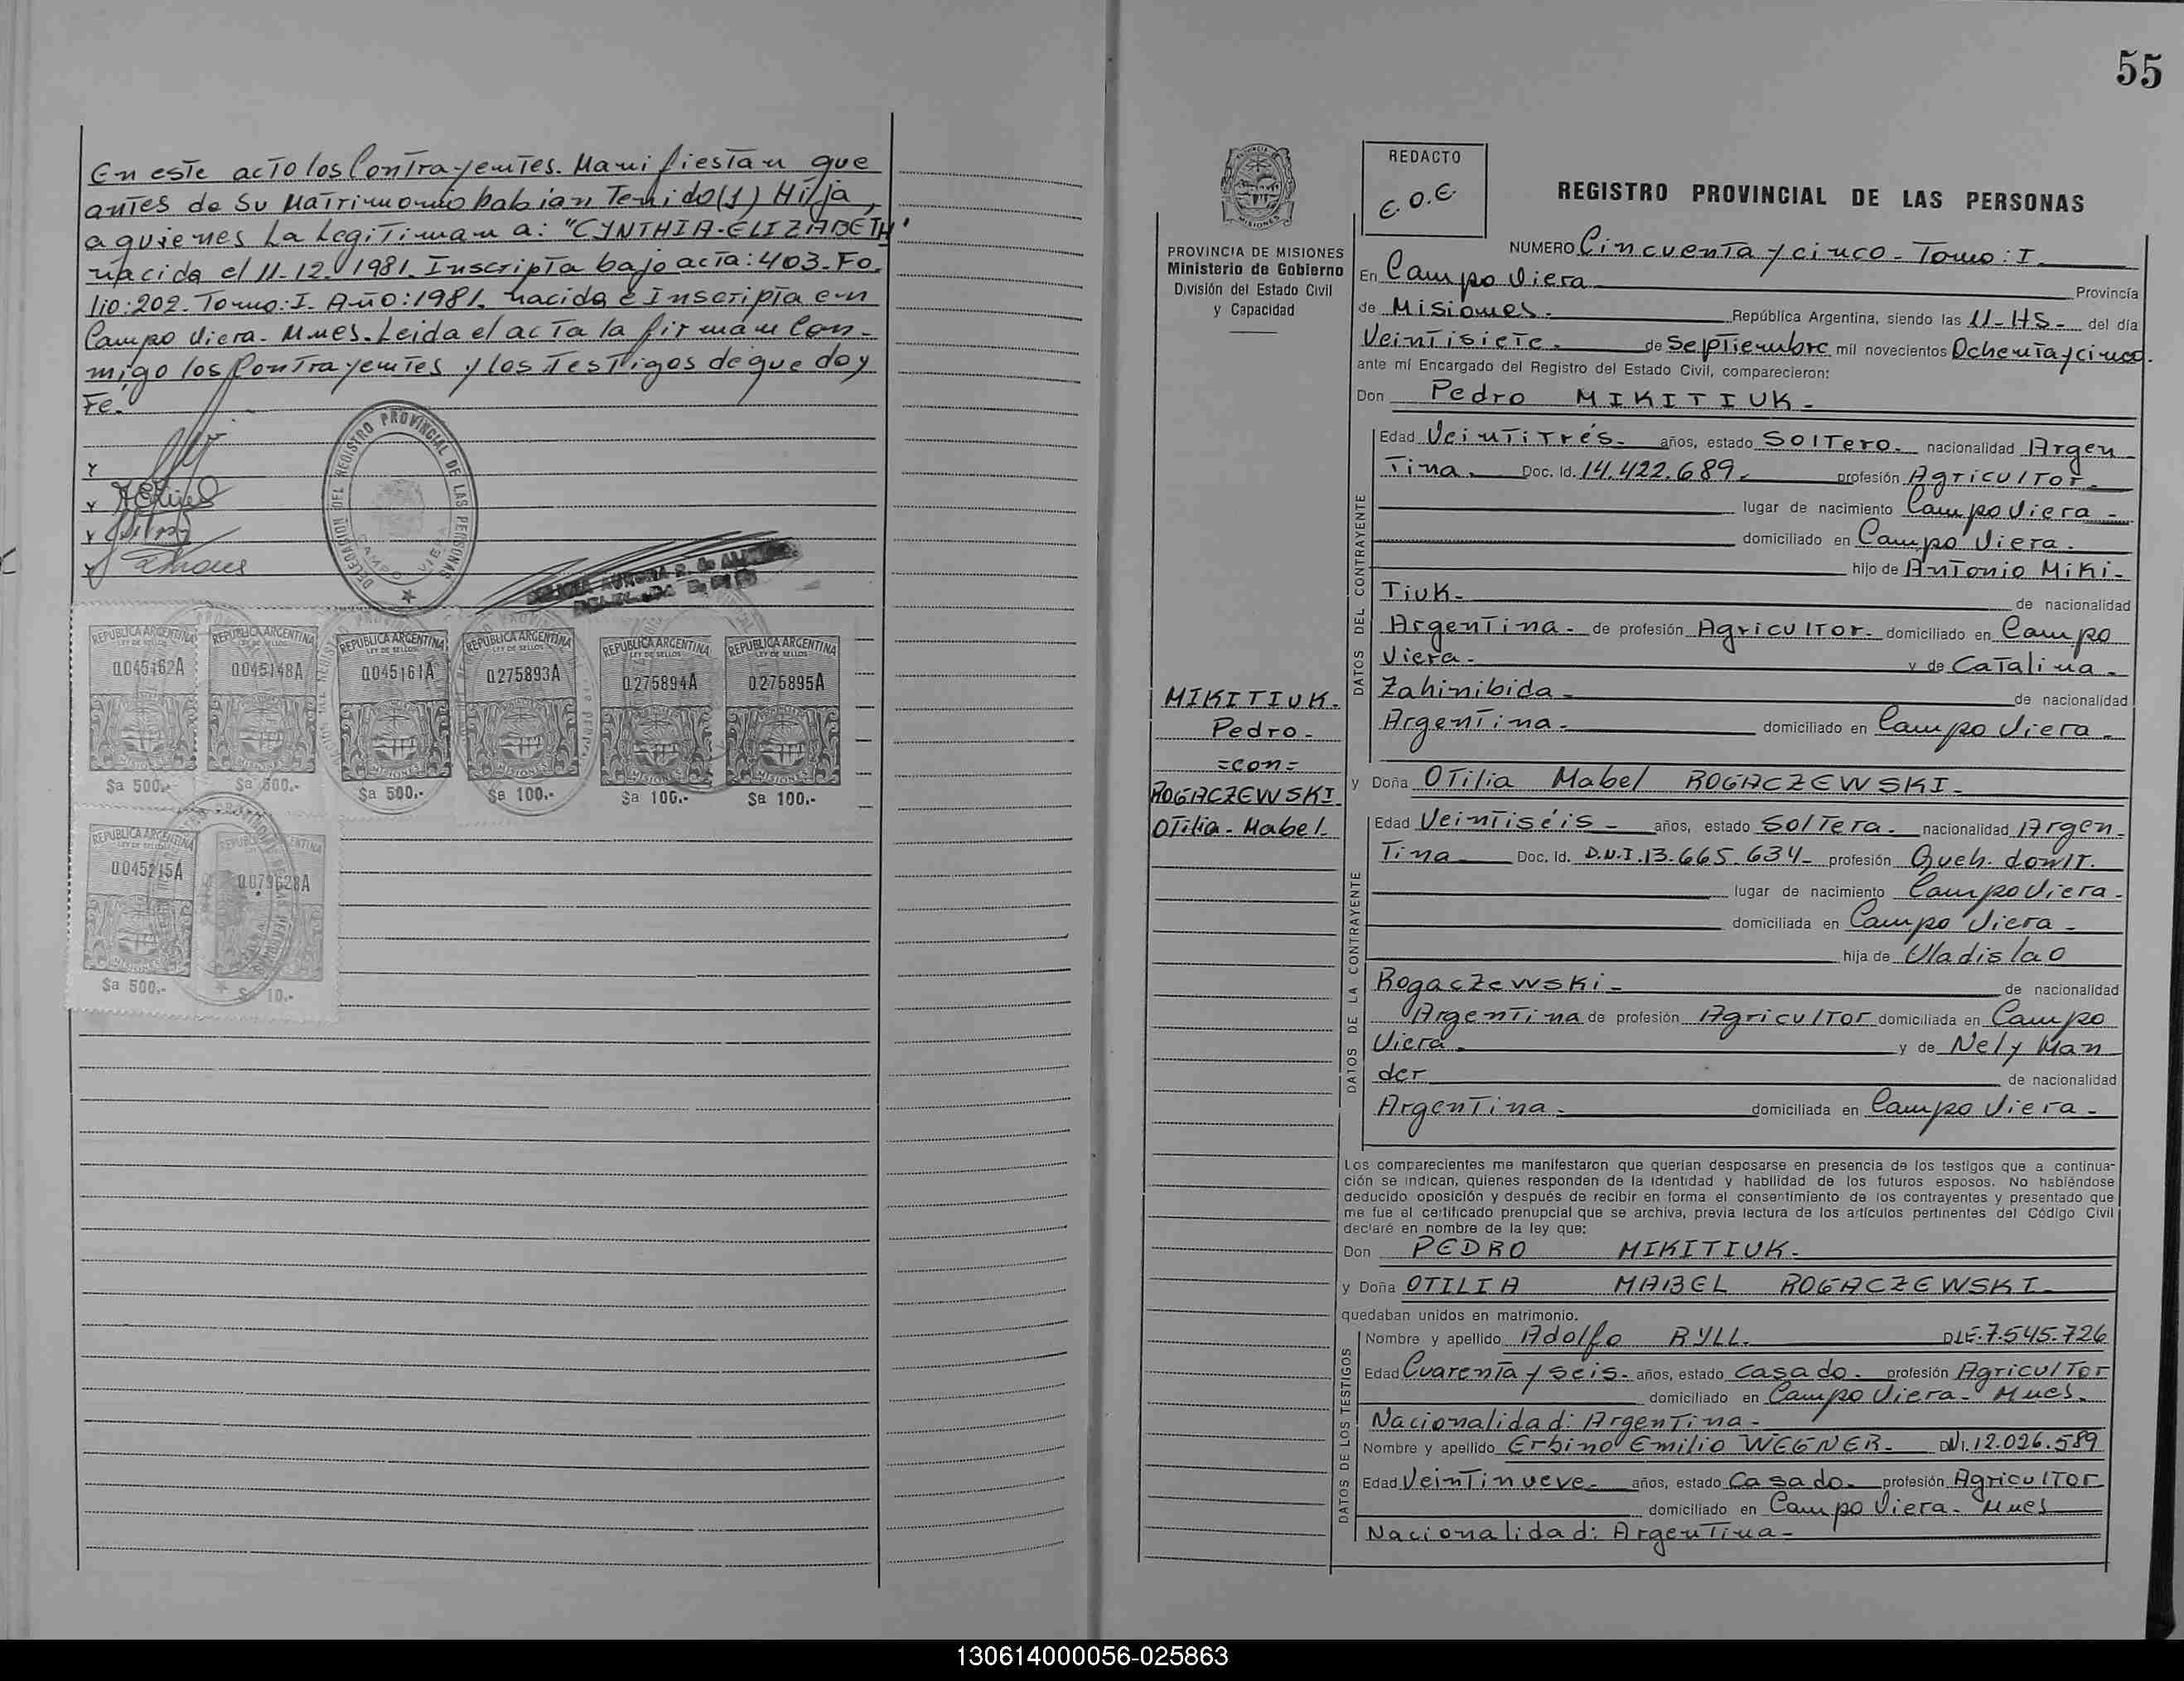 En este acto los Contrayentes. Manifiestan que
antes de su Matrimonio habian Tenido (1) Hija,
a quienes La Legitiman a: "CYNTHIA-ELIZABETH"
nacida el 11-12-1981. Inscripta bajo acta: 403-Fo.
lio: 202. Tomo: I. Año: 1981. nacida e Inscripta en
Campo Viera - Mnes. Leida el acta la firman Con-
migo los Contrayentes y los Testigos de que doy
Fe.
DELEGACION DEL REGISTRO PROVINCIAL DE LAS PERSONAS
CAMPO VIERA
REPUBLICA ARGENTINA REPUBLICA ARGENTINA REPUBLICA ARGENTINA REPUBLICA ARGENTINA REPUBLICA ARGENTINA REPUBLICA ARGENTINA
LEY DE SELLOS LEY DE SELLOS LEY DE SELLOS LEY DE SELLOS LEY DE SELLOS LEY DE SELLOS
0.045162A 0.045148A 0.045161A 0.275893A 0.275894A 0.275895A
MISIONES MISIONES MISIONES MISIONES MISIONES MISIONES
$a 500.- $a 500.- $a 500.- $a 100.- $a 100.- $a 100.-
REPUBLICA ARGENTINA REPUBLICA ARGENTINA
LEY DE SELLOS
0.045215A 0.079628A
MISIONES
$a 500.- $a 10.-
55
PROVINCIA DE MISIONES
Ministerio de Gobierno
División del Estado Civil
y Capacidad
MIKITIUK.
Pedro-
=con=
ROGACZEWSKI
Otilia-Mabel-
REDACTO
E.O.E.
REGISTRO PROVINCIAL DE LAS PERSONAS
NUMERO Cincuenta y cinco - Tomo: I.
En Campo Viera Provincia
de Misiones. República Argentina, siendo las 11-HS- del día
Veintisiete- de Septiembre mil novecientos Ochenta y cinco.
ante mí Encargado del Registro del Estado Civil, comparecieron:
Don Pedro MIKITIUK-
DATOS DEL CONTRAYENTE
Edad Veintitrés- años, estado Soltero- nacionalidad Argen
tina- Doc. Id. 14.422.689- profesión Agricultor-
lugar de nacimiento Campo Viera-
domiciliado en Campo Viera.
hijo de Antonio Miki-
Tiuk- de nacionalidad
Argentina- de profesión Agricultor- domiciliado en Campo
Viera- y de Catalina-
Zahinibida- de nacionalidad
Argentina- domiciliado en Campo Viera-
y Doña Otilia Mabel ROGACZEWSKI-
DATOS DE LA CONTRAYENTE
Edad Veintiséis- años, estado Soltera- nacionalidad Argen-
Tina Doc. Id. D.N.I. 13.665.634- profesión Queh. domst.
lugar de nacimiento Campo Viera-
domiciliada en Campo Viera-
hija de Uladislao
Rogaczewski- de nacionalidad
Argentina de profesión Agricultor domiciliada en Campo
Viera- y de Nely Man
der de nacionalidad
Argentina- domiciliada en Campo Viera-
Los comparecientes me manifestaron que querían desposarse en presencia de los testigos que a continua-
ción se indican, quienes responden de la identidad y habilidad de los futuros esposos. No habiéndose
deducido oposición y después de recibir en forma el consentimiento de los contrayentes y presentado que
me fue el certificado prenupcial que se archiva, previa lectura de los artículos pertinentes del Código Civil
declaré en nombre de la ley que:
Don PEDRO MIKITIUK-
y Doña OTILIA MABEL ROGACZEWSKI-
quedaban unidos en matrimonio.
DATOS DE LOS TESTIGOS
Nombre y apellido Adolfo RYLL. DLE-7.545.726
Edad Cuarenta y seis- años, estado casado- profesión Agricultor
domiciliado en Campo Viera- Mnes.
Nacionalidad: Argentina-
Nombre y apellido Erbino Emilio WEGNER- DNI.12.026.589
Edad Veintinueve- años, estado Casado- profesión Agricultor
domiciliado en Campo Viera- Mnes
Nacionalidad: Argentina-
130614000056-025863